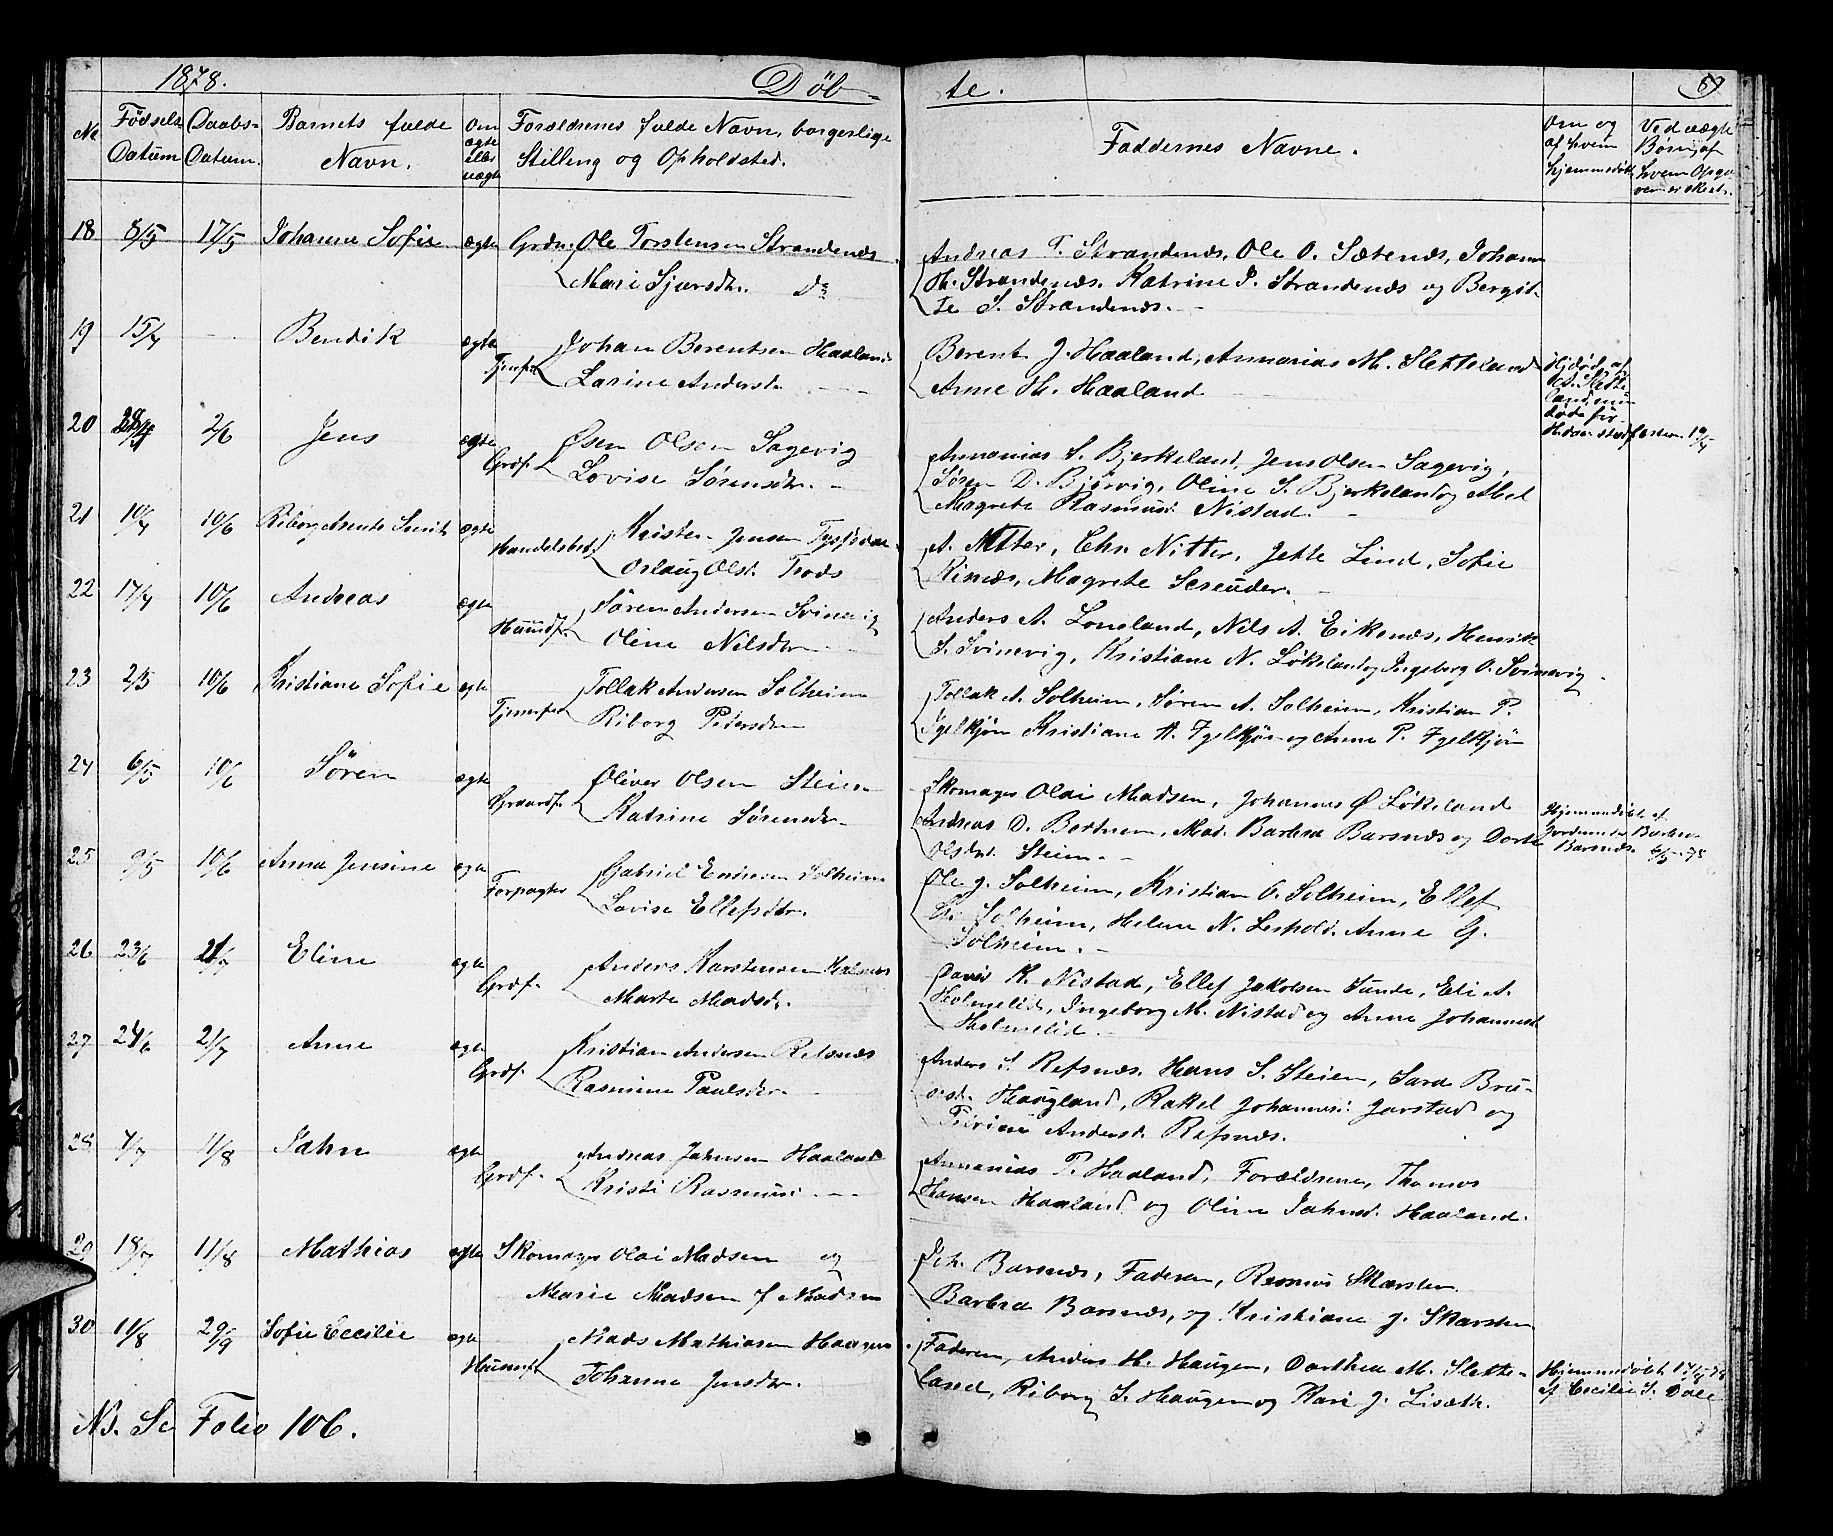 1878. Döb- te. 59
No Fødsels Datum Daabs- Datum. Barnets fulde Navn. Om ægte eller uægte Forældrenes fulde Navn, borgerlige Stilling og Opholdsted. Faddernes Navne. Om og af hvem hjemmedöbt Ved uægte Börn, af hvem Opga- ven er skeet.
18 8/5 17/5 Johanne Sofie ægte Grdm. Ole Torstensen Strandenæs
Mari Sjursdtr. Ds
Andreas T. Strandenæs, Ole O. Sætenæs, Johan
H. Strandenæs. Katrine J. Strandenæs og Bergit-
te S. Strandenæs. -
19 15/4 - Bendik ægte Tjenfr Johan Berentsen Haaland
Larine Andersdr
Berent J. Haaland, Annanias M. Sletteland
Anne H. Haaland
Hjdöbt af
20 2/6 Jens ægte Grdf. Øsen Olsen Sagevig
Lovise Sörensdr. -
Annanias S. Bjerkeland, Jens Olsen Sagevig,
Sören D. Björvig, Oline S. Bjerkeland og Abel
Magrete Rasmusd. Nistad. -
21 10/4 10/6 Riborg Agente Smit ægte Handelsbet. Kristen Jensen
Oslaug Olsd.
A. Nitter, Chr. Nitter, Jette Lind, Sofie
Risnæs, Magrete Screuder. -
22 17/4 10/6 Andreas ægte Huusf. Sören Andersen Svinevig
Oline Nilsdr
Anders A. Loneland, Nils A. Eikenæs, Henrik
S. Svinevig, Kristiane N. Lökeland og Ingeborg O. Svinevig
23 2/5 10/6 Kristiane Sofie ægte Tjenerfr Tollak Andersen Solheim
Riborg Pedersdr
Tollak A. Solheim, Sören A. Solheim, Kristian P.
Igelkjön Kristiane A. Igelkjön og Anne P. Igelkjön
24 6/5 10/6 Sören ægte Graardf. Oliver Olsen Steien
Katrine Sörensdr.
Skomager Olai Madsen, Johannes Ø Lökeland
Andreas D. Bortnem, Mad. Barbra Barsnæs og Dorte
Olsdr. Steien. -
Hjemmedöbt af
Jordemdr Barbra
Barsnæs. 6/5-78
25 9/5 10/6 Anna Jensine ægte Forpagter Gabriel Endresen Solheim
Lovise Ellefsdtr.
Ole G. Solheim, Kristian O. Solheim, Ellef
G. Solheim, Helene N. Leshold. Anne G.
Solheim. -
26 23/6 21/7 Eline ægte Grdf. Anders Karstensen
Marte Madsdr.
David K. Nistad, Ellef Jakobsen Sunde, Eli A.
Holmelid, Ingeborg M. Nistad og Anne Johannesd
Holmelid. -
27 24/6 21/7 Anne ægte Grdf. Kristian Andersen Refsnæs
Rasmine Paulsdr.
Anders S. Refsnæs. Hans S. Steien, Sara Bru-
Haugland, Rakel Johannesd. Jarstad og
Severine Andersd. Refsnæs.
28 4/7 11/8 Jahn ægte Grdf. Andreas Jahnsen Haaland
Kristi Rasmusd. - -
Annanias P. Haaland, Forældrene, Thomas
Hansen Haaland og Oline Jahnsd. Haaland.
29 18/7 11/8 Mathias ægte Skomager Olai Madsen og
Marie Madsen f. Madsen
Joh. Barsnæs, Faderen, Rasmus Skarsten
Barbra Barsnæs, og Kristiane J. Skarsten
30 11/8 29/9 Sofie Cecilie ægte Huusmf. Mads Mathiasen Haugen
Johanna Jensdtr.
Faderen, Anders H. Haugen, Dorthea M. Slette-
land, Riborg S. Haugen og Kari J. Liseth.
Hjemmedöbt
af Cecilie S. Dale
NB. Se Folio 106.